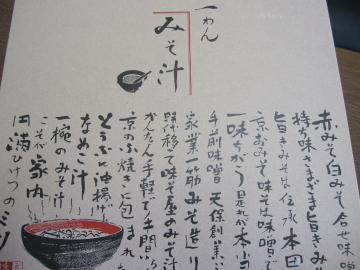 一わん
みそ汁
赤みそ白みそ合せ味噌
持ち味さまざま旨きみ
旨きみそは伝承本田
京おみそ味噌は味噌で
一味ちがう是れが本
手前味噌天保創業い
家業一筋みそ造り
時代移て味そ屋のみそ汁
かんたん手軽で手間い
京のふ焼きに包まれた
とうふに油揚げ
なめこ汁
一椀のみそ汁
こそが家内
円満ひけつの